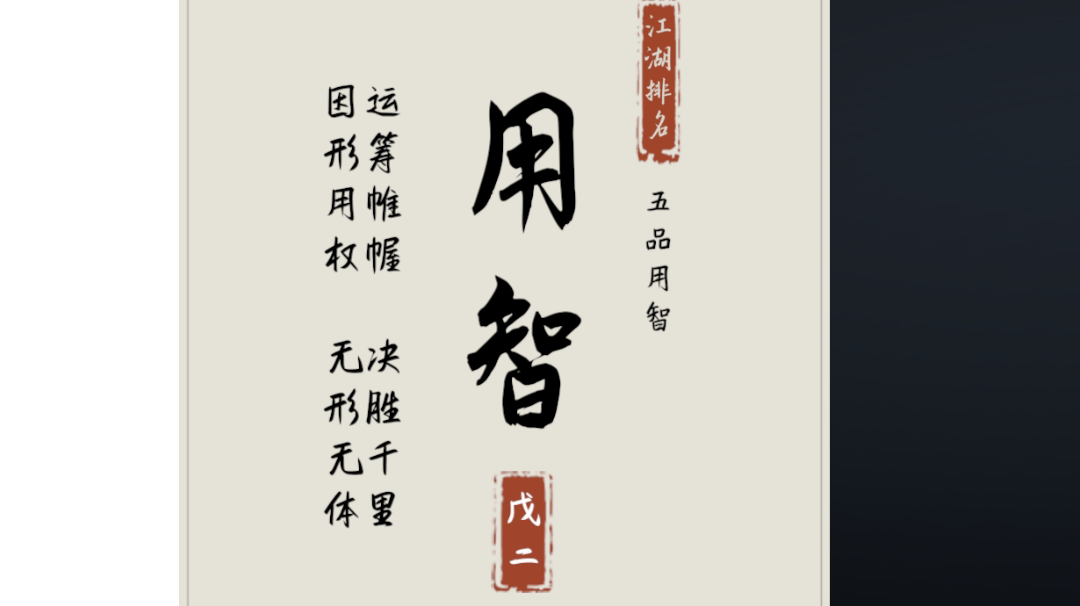 江湖排名
五品用智
用智
戊二
运筹帷幄 决胜千里
因形用权 无形无体